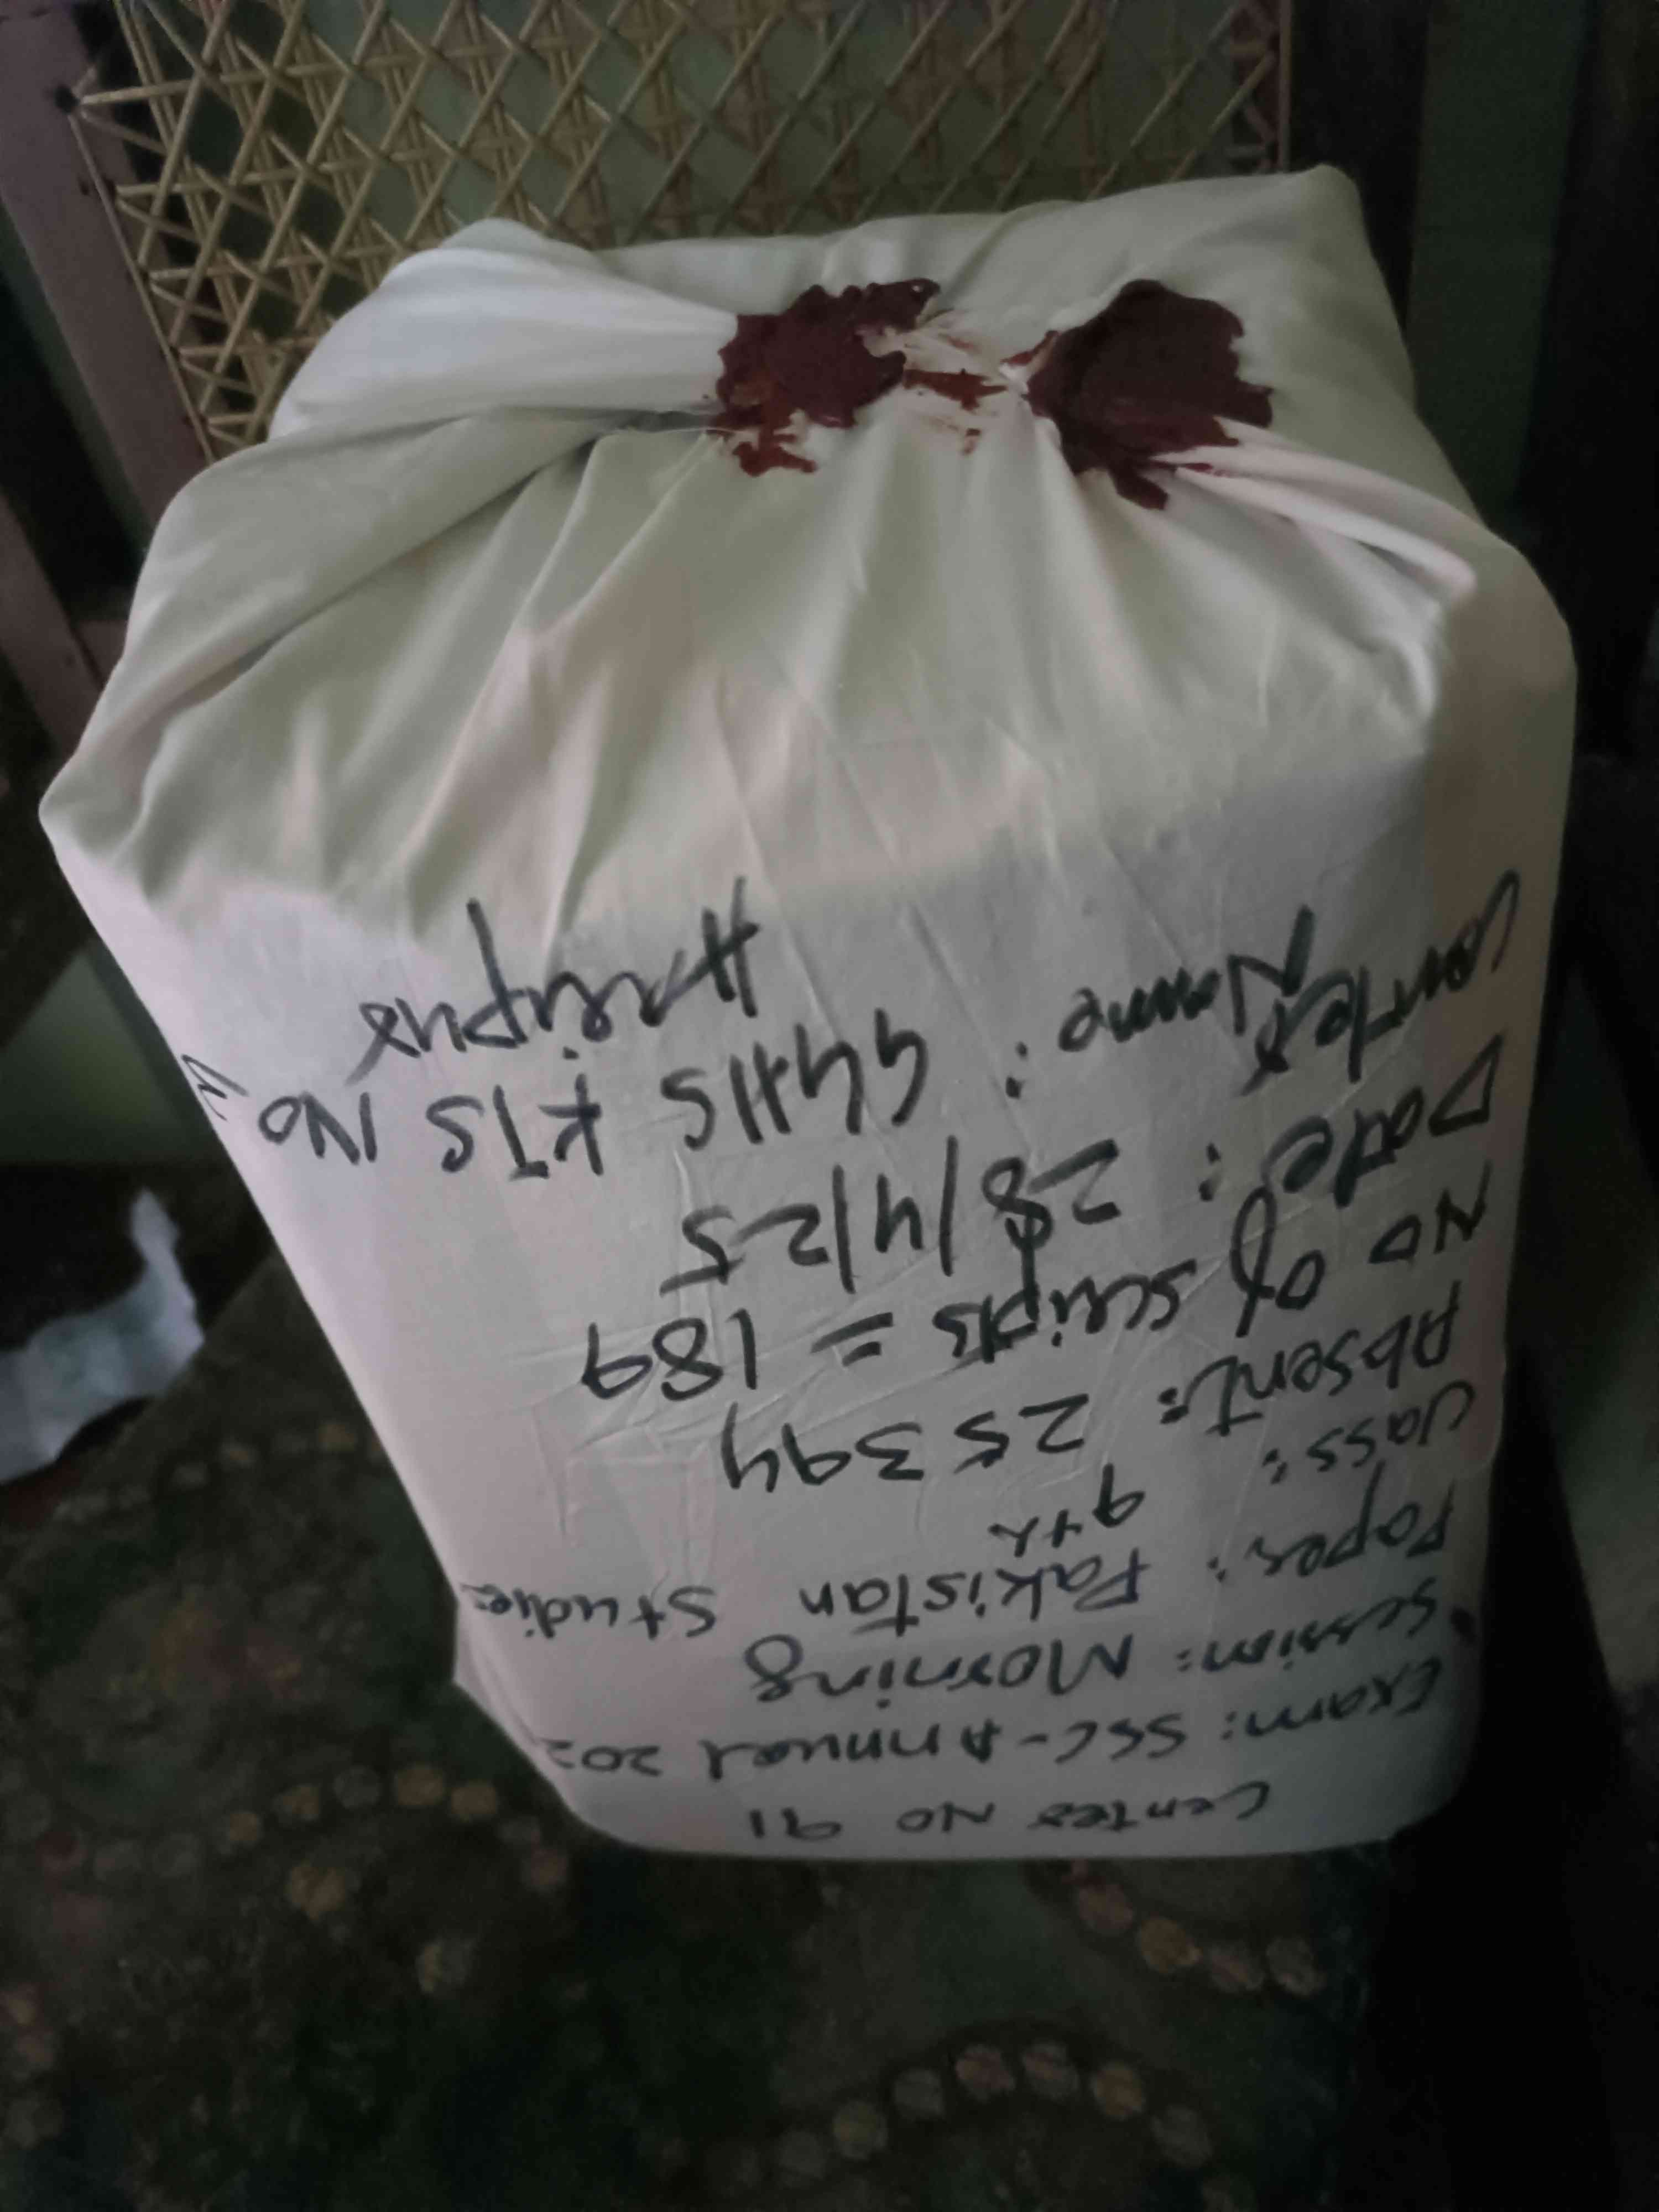 Center No 91
Exam: SSC-Annual 202
Session: Morning
Paper: Pakistan Studies
Class: 9th
Absent: 25394
No of scripts = 189
Date: 28/4/25
Center Name: GGHS KTS No
Haripur